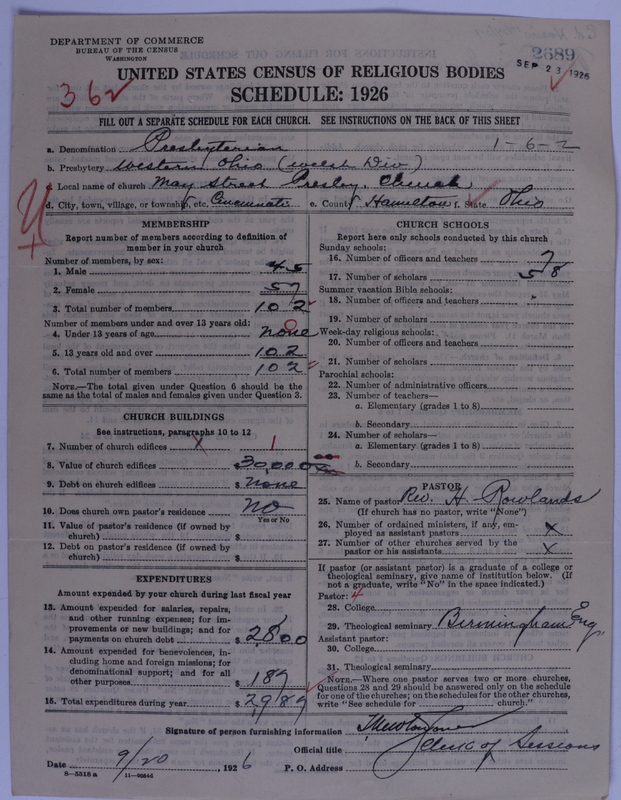 DEPARTMENT OF COMMERCE
BUREAU OF THE CENSUS
WASHINGTON
2689
SEP 23 1926
UNITED STATES CENSUS OF RELIGIOUS BODIES
SCHEDULE: 1926
362
FILL OUT A SEPARATE SCHEDULE FOR EACH CHURCH. SEE INSTRUCTIONS ON THE BACK OF THIS SHEET
a. Denomination Presbyterian 1-6-2
b. Presbytery Western Ohio (Welsh Div)
c. Local name of church May Street Presby. Church
d. City, town, village, or township, etc. Cincinnati e. County Hamilton f. State Ohio
MEMBERSHIP
Report number of members according to definition of
member in your church
Number of members, by sex:
1. Male 45
2. Female 57
3. Total number of members 102
Number of members under and over 13 years old:
4. Under 13 years of age none 0
5. 13 years old and over 102
6. Total number of members 102
NOTE.—The total given under Question 6 should be the
same as the total of males and females given under Question 3.
CHURCH BUILDINGS
See instructions, paragraphs 10 to 12
7. Number of church edifices X 1
8. Value of church edifices $ 30,000
9. Debt on church edifices $ none
10. Does church own pastor's residence No
Yes or No
11. Value of pastor's residence (if owned by
church) $
12. Debt on pastor's residence (if owned by
church) $
EXPENDITURES
Amount expended by your church during last fiscal year
13. Amount expended for salaries, repairs,
and other running expenses; for im-
provements or new buildings; and for
payments on church debt $ 2800
14. Amount expended for benevolences, in-
cluding home and foreign missions; for
denominational support; and for all
other purposes $ 189
15. Total expenditures during year $ 2989
CHURCH SCHOOLS
Report here only schools conducted by this church
Sunday schools:
16. Number of officers and teachers 7
17. Number of scholars 58
Summer vacation Bible schools:
18. Number of officers and teachers
19. Number of scholars
Week-day religious schools:
20. Number of officers and teachers
21. Number of scholars
Parochial schools:
22. Number of administrative officers
23. Number of teachers—
a. Elementary (grades 1 to 8)
b. Secondary
24. Number of scholars—
a. Elementary (grades 1 to 8)
b. Secondary
PASTOR
25. Name of pastor Rev. H. Rowlands
(If church has no pastor, write "None")
26. Number of ordained ministers, if any, em-
ployed as assistant pastors X
27. Number of other churches served by the
pastor or his assistants X
If pastor (or assistant pastor) is a graduate of a college or
theological seminary, give name of institution below. (If
not a graduate, write "No" in the space indicated.)
Pastor: 4
28. College
29. Theological seminary Birmingham Eng.
Assistant pastor:
30. College
31. Theological seminary
NOTE.—Where one pastor serves two or more churches,
Questions 28 and 29 should be answered only on the schedule
for one of the churches; on the schedules for the other churches,
write "See schedule for church."
Signature of person furnishing information
Official title Clerk of Sessions
Date 9/20, 1926 P. O. Address
8—5518 a 11—90546